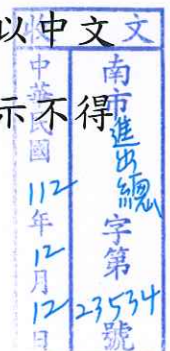 以中文
示不得
收文
南市進出總字第23534號
中華民國112年12月12日